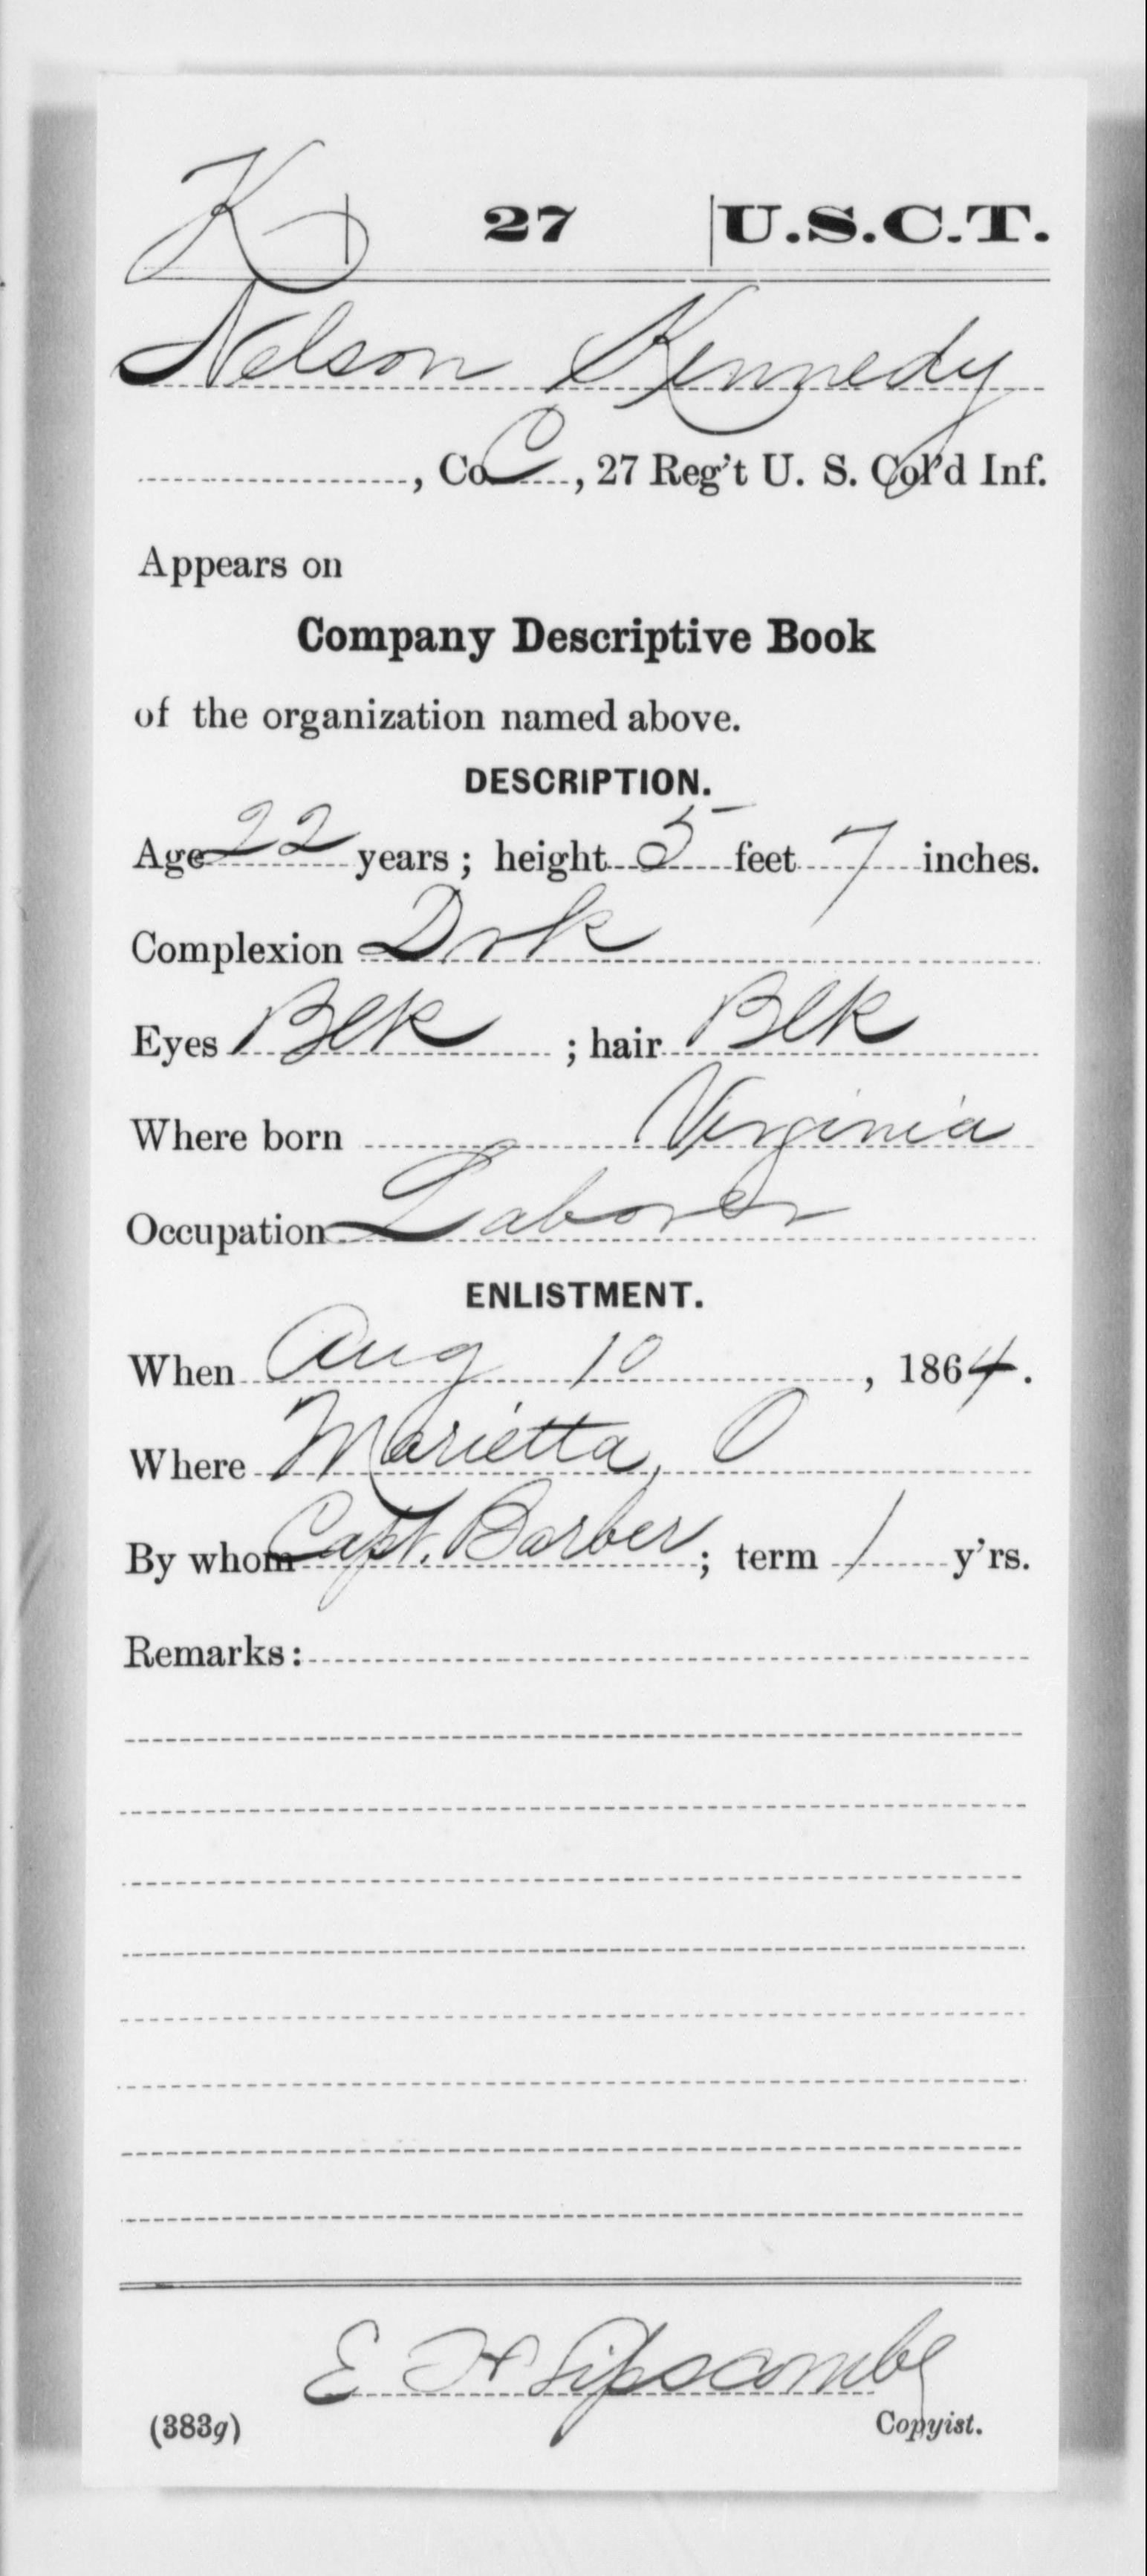 K 27 U.S.C.T.
Nelson Kennedy
, Co C, 27 Reg't U. S. Col'd Inf.
Appears on
Company Descriptive Book
of the organization named above.
DESCRIPTION.
Age 22 years; height 5 feet 7 inches.
Complexion Drk
Eyes Blk; hair Blk
Where born Virginia
Occupation Laborer
ENLISTMENT.
When Aug 10, 1864.
Where Marietta, O
By whom Capt. Barber; term 1 y'rs.
Remarks:
E H Lipscombe
(383g) Copyist.